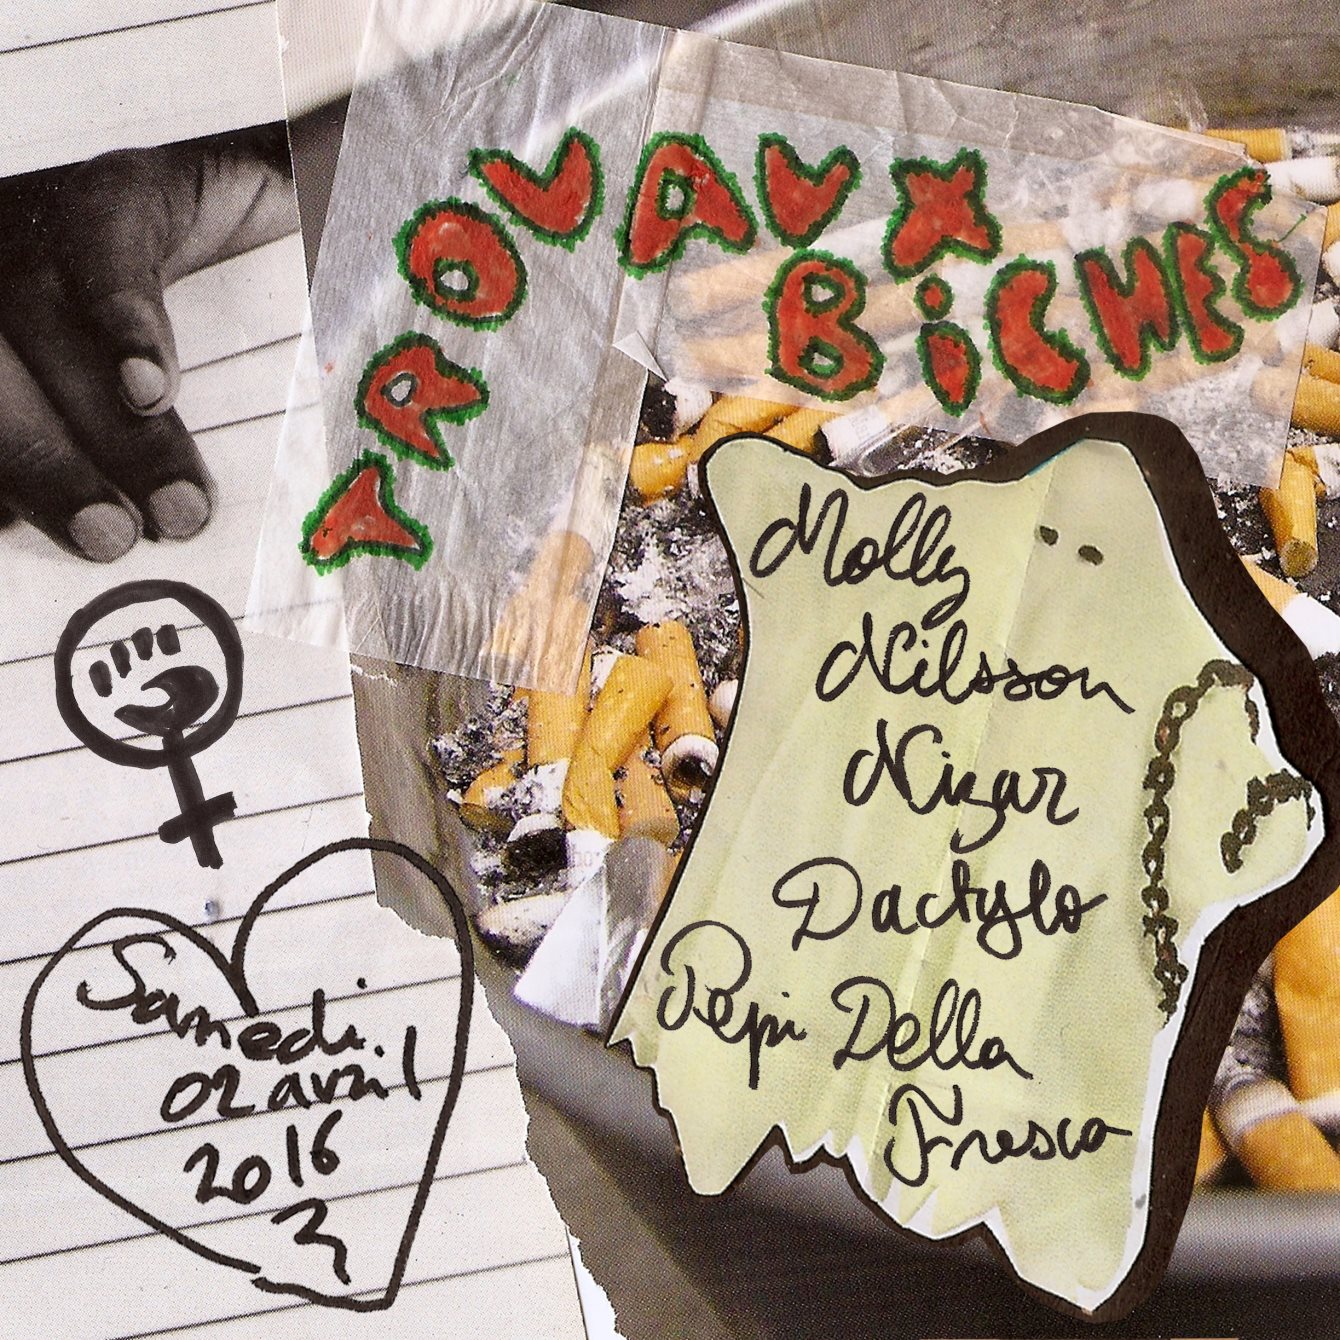 TROUAUX
BiCHES
Molly
Nilsson
Nizar
Dactylo
Pepi Della
Fresca
Samedi
02 avril
2016